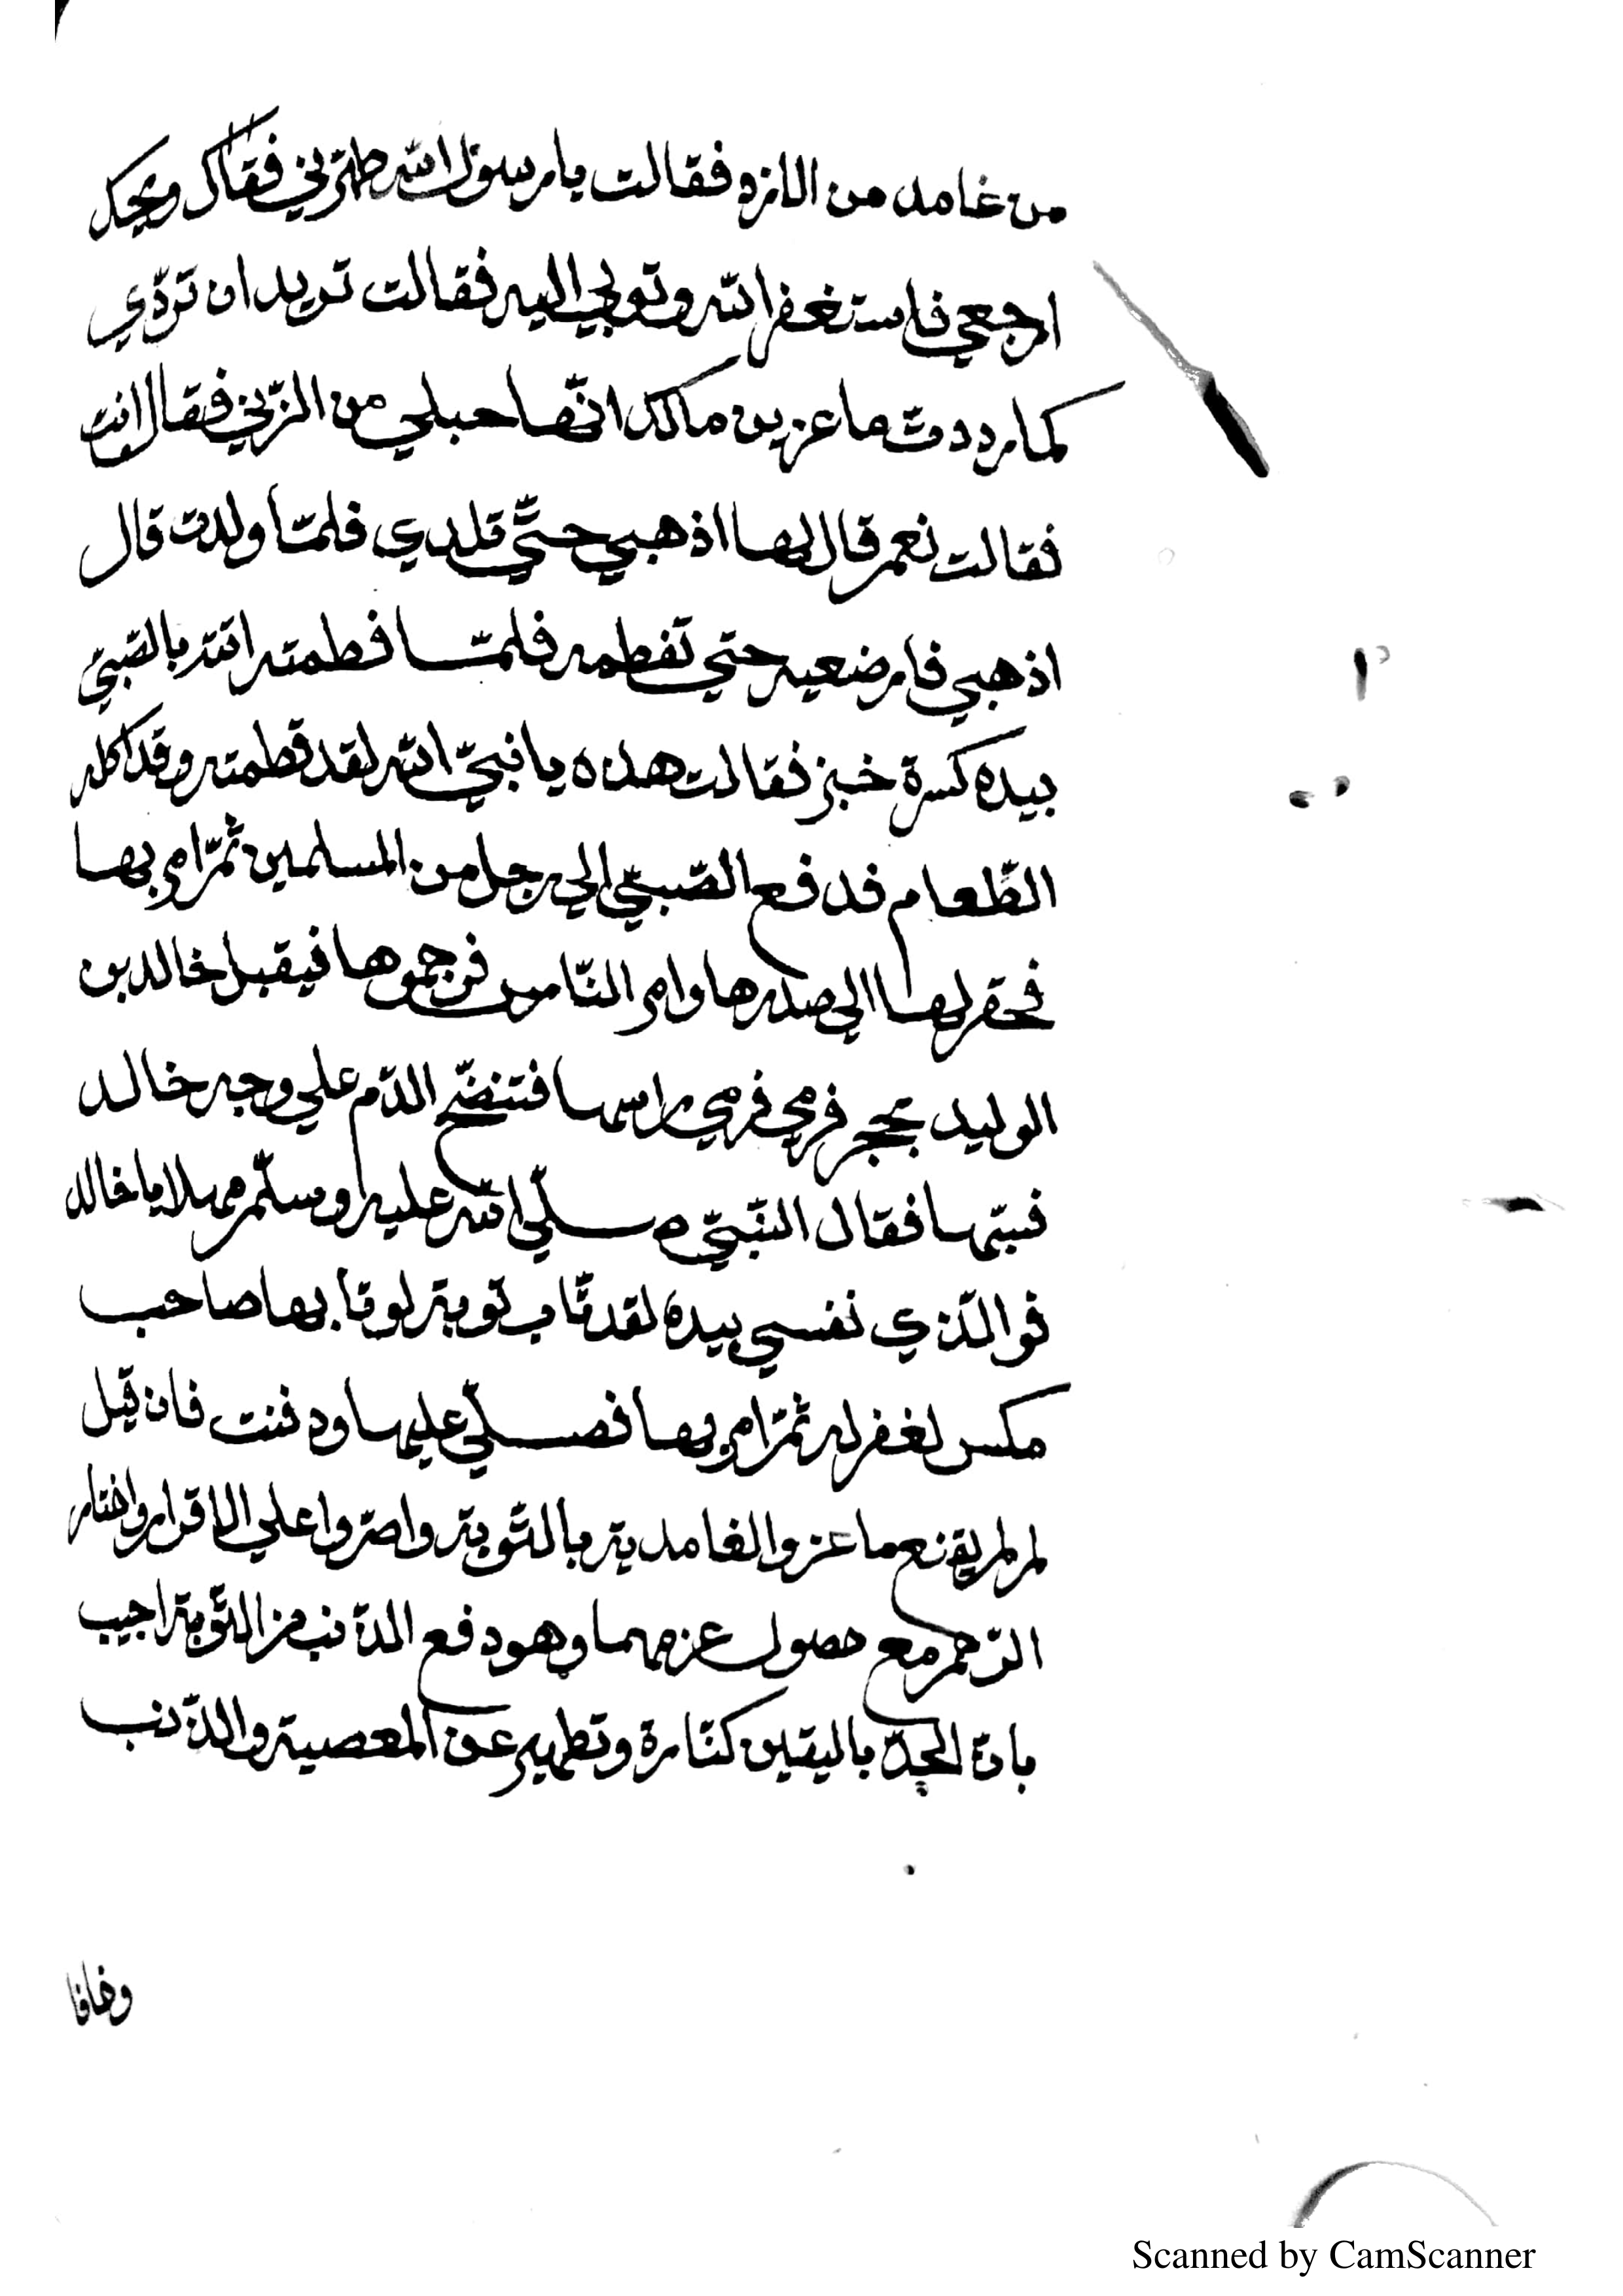 من غامد من الازد فقالت يا رسول الله طهّرني فقال ويحك
ارجعي فاستغفر الله وتوبي اليه فقالت تريد ان تردّي
كما رددت ماعز بن مالك انّها حبلي من الزّني فقال انت
فقالت نعم قال لها اذهبي حتّي تلدي فلمّا ولدت قال
اذهبي فارضعيه حتي تفطمه فلمّا فطمته اتته بالصّبيّ
بيده كسرة خبز فقالت هذه يا نبيّ الله لقد فطمته وقد اكله
الطّعام فدفع الصّبيّ الي رجل من المسلمين ثمّ امر بها
فحفر لها الي صدرها وامر النّاس فرجموها فيقبل خالد بن
الوليد بحجر فرمي فرمي راسها فتنضّح الدّم علي وجه خالد
فسبّها فقال النّبيّ صلّي الله عليه وسلّم مهلا يا خالد
فوالّذي نفسي بيده لقد تاب توبة لوتابها صاحب
مكس لغفر له ثمّ امر بها فصلّي عليها ودفنت فان قيل
لم لم يقنع ماعز والغامدية بالتّوبة واصرّوا علي الاقرار واختار
الرّجم مع حصول غرضهما وهو دفع الذنب من التّوبة اجيب
بانّ الحدّ باليقين كفّارة وتطهير عن المعصية والذنب
وخافا
Scanned by CamScanner